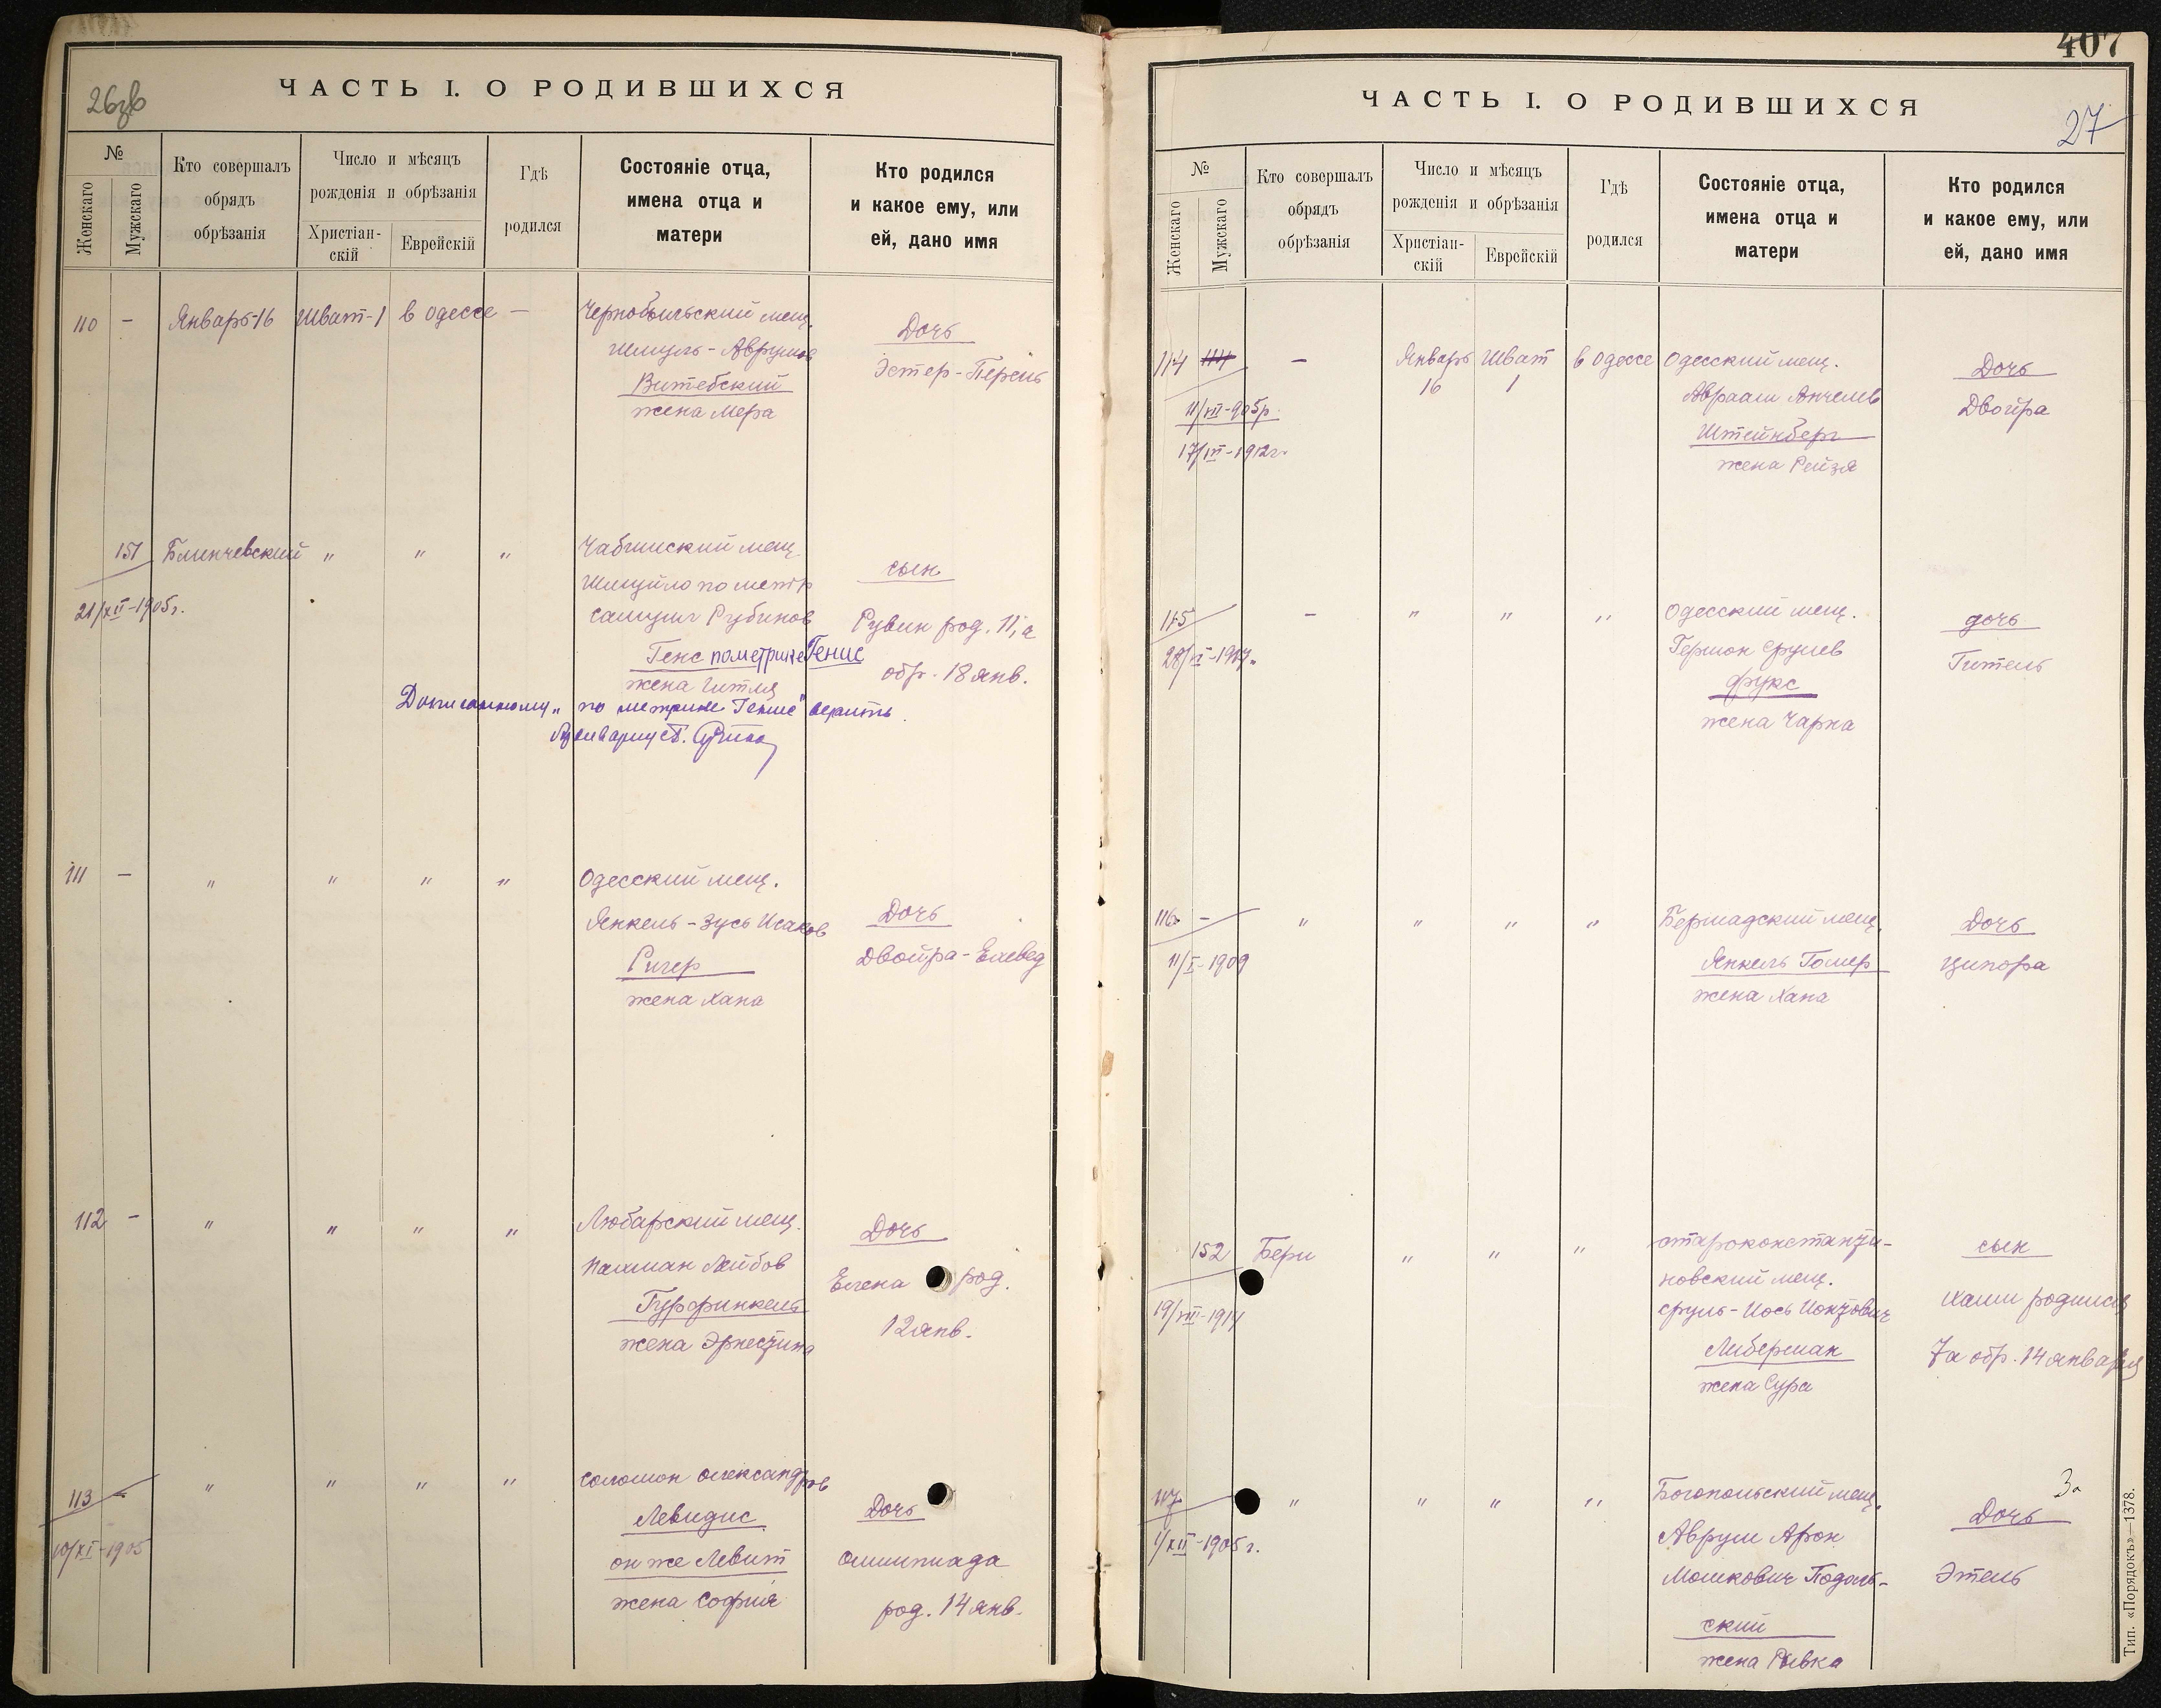 26зв
ЧАСТЬ I. О РОДИВШИХСЯ
№
Женскаго
Мужскаго
Кто совершалъ
обрядъ
обрѣзанія
Число и мѣсяцъ
рожденія и обрѣзанія
Христіан-
скій
Еврейскій
Гдѣ
родился
Состояніе отца,
имена отца и
матери
Кто родился
и какое ему, или
ей, дано имя
110 — Январь-16 Шват-1 в Одессе — Чернобыльский мещ.
Шмуль-Аврумов
Витебский
жена Мера
Дочь
Эстер-Перель
151 Блинчевский " " " Чабгинский мещ
21/XII-1905г.
Шмуйло по метр
Самуил Рубинов
Генс по метрике Генис
жена Гитля
сын
Рувин род. 11, а
обр. 18 янв.
Дописанному „по метрике Генис" верить.
111 — " " " " Одесский мещ.
Янкель-Зусь Исаков
Ригер
жена Хана
Дочь
Двойра-Елевед
112 — " " " " Любарский мещ.
Нахман Лейбов
Гурфинкель
жена Эрнестина
Дочь
Елена род.
12 янв.
113 — " " " " Соломон Олександров
10/XI-1905
Левидис
он же Левит
жена София
Дочь
Олимпиада
род. 14 янв.
407
27
ЧАСТЬ I. О РОДИВШИХСЯ
№
Женскаго
Мужскаго
Кто совершалъ
обрядъ
обрѣзанія
Число и мѣсяцъ
рожденія и обрѣзанія
Христіан-
скій
Еврейскій
Гдѣ
родился
Состояніе отца,
имена отца и
матери
Кто родился
и какое ему, или
ей, дано имя
114 114 — Январь 16 Шват 1 в Одессе Одесский мещ.
11/VII-905г.
17/III-1912г.
Авраам Анчелев
Штейнберг
жена Рейзя
Дочь
Двойра
115 — " " " Одесский мещ.
28/VI-1907г.
Гершон Срулев
Фукс
жена Чарна
дочь
Гитель
116 — " " " " Бершадский мещ.
11/I-1909
Янкель Гомер
жена Хана
Дочь
Ципора
152 Бери " " " Староконстанти-
19/VIII-1914
новский мещ.
Сруль-Иось Ионтович
Либерман
жена Сура
сын
Хаим родился
7 а обр. 14 января
117 " " " " Богопольский мещ.
1/XII-1905г.
Аврум Арон
Мошкович Подоль-
ский
жена Ривка
3а
Дочь
Этель
Тип. «Порядокъ»—1378.